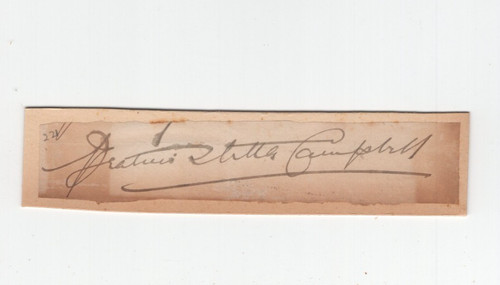 Beatrice Stella Campbell